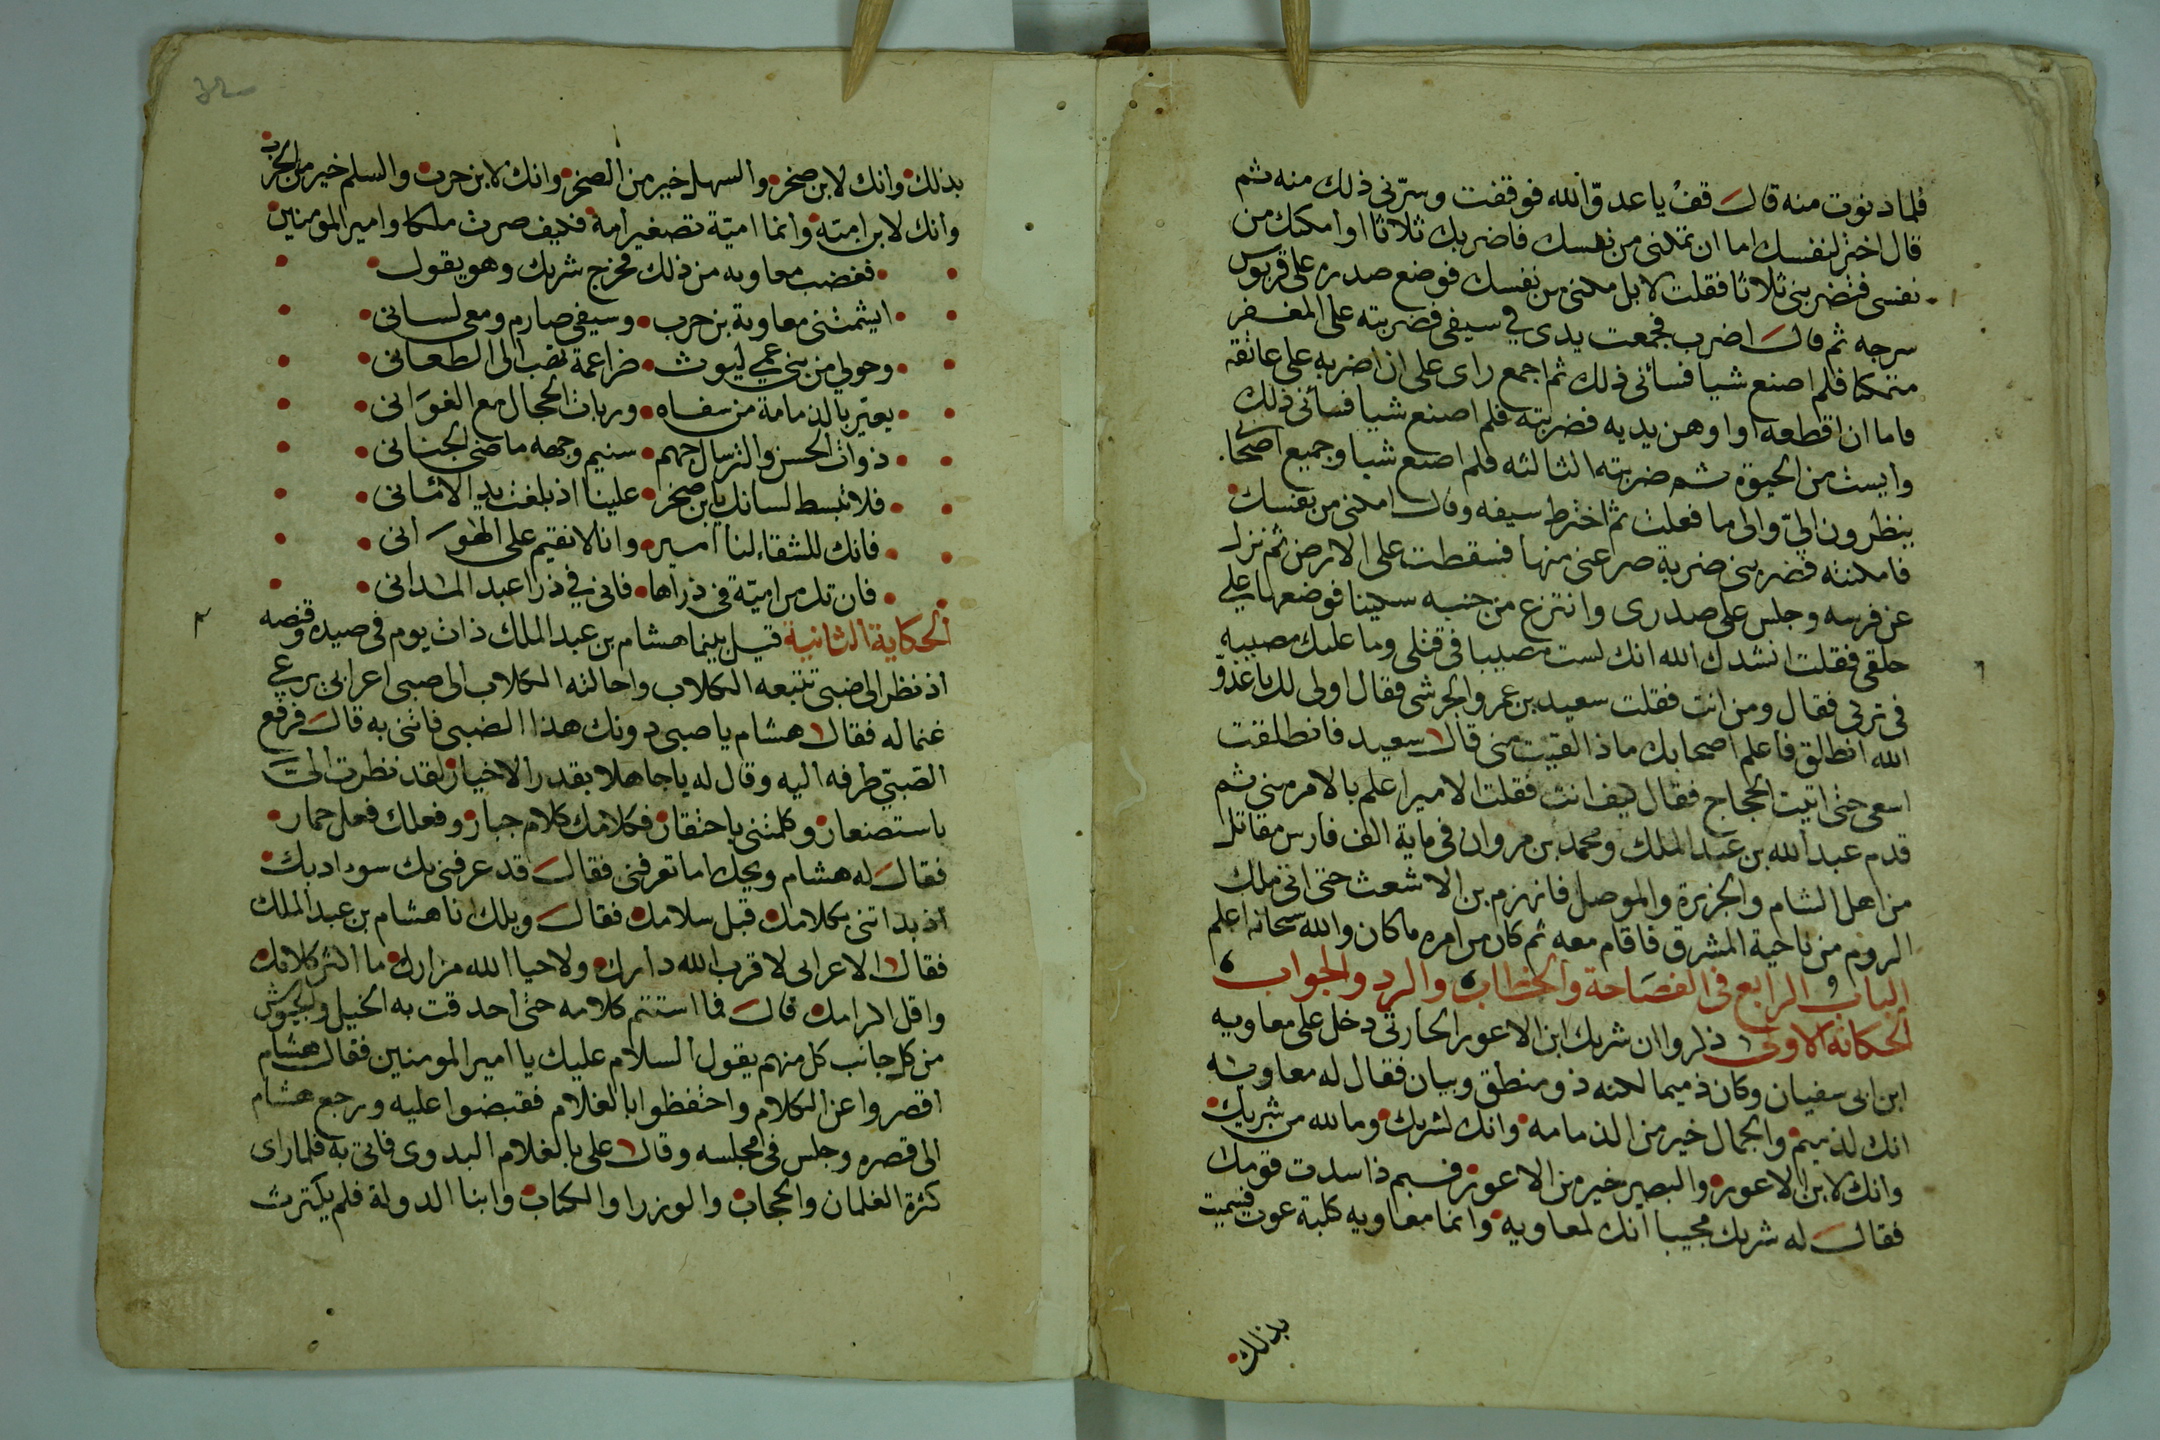 فلما دنوت منه قال قف يا عدوّ الله فوقفت وسرّني ذلك منه ثم
قال اختر لنفسك اما ان تمكنى من نفسك فاضربك ثلاثا او امكنك من
نفسى فتضربنى ثلاثا فقلت لا بل مكنى من نفسك فوضع صدره على قربوس
سرجه ثم قال اضرب فجمعت يدى في سيفى فضربته على المغفر
متمكنا فلم اصنع شيا فسأنى ذلك ثم اجمع راى على ان اضربه على عاتقه
فاما ان اقطعه او اوهن يديه فضربته فلم اصنع شيا فسأنى ذلك
وايست من الحيوة ثم ضربته الثالثه فلم اصنع شيا وجميع اصحا
ينظرون اليّ والى ما فعلت ثم اخترط سيفه وقال امكنى من نفسك
فامكنته فضربنى ضربة صرعنى منها فسقطت على الارض ثم نزل
عن فرسه وجلس على صدرى وانتزع من جنبه سكينا فوضعها على
حلقى فقلت انشدك الله انك لست مصيبا فى قتلى وما عليك مصيبه
فى تركى فقال ومن انت فقلت سعيد بن عمر والجرشى فقال اولى لك يا عدوّ
الله انطلق فاعلم اصحابك ماذا لقيت منى قال سعيد فانطلقت
اسعى حتى اتيت الحجاج فقال كيف انت فقلت الامير اعلم بالامر منى ثم
قدم عبد الله بن عبد الملك ومحمد بن مروان فى ماية الف فارس مقاتل
من اهل الشام والجزيرة والموصل فانهزم بن الاشعث حتى اتى ملك
الروم من ناحية المشرق فاقام معه ثم كان من امره ما كان والله سبحانه اعلم
الباب الرابع فى الفصاحة والخطاب والرد والجواب
الحكاية الاولى ذكروا ان شريك ابن الاعور الحارثى دخل على معاويه
ابن ابى سفيان وكان ذميما لكنه ذو منطق وبيان فقال له معاويه
انك لذميم والجمال خير من الذمامه وانك لشريك وما لله من شريك
وانك لابن الاعور والبصير خير من الاعور فبم ذا سدت قومك
فقال له شريك مجيبا انك لمعاويه وانما معاويه كلبة عوت فسميت
بذلك
بذلك وانك لابن صخر والسهل خير من الصخر وانك لابن حرب والسلم خير من الحرب
وانك لابن اميّة وانما اميّة تصغير أمة فكيف صرت ملكا وامير المومنين
فغضب معاويه من ذلك فخرج شريك وهو يقول
ايشمتنى معاوية بن حرب وسيفى صارم ومعى لسانى
وحولي من بنى عمي ليوث ضراغمة تضب الى الطعانى
يعير بالدمامة من سفاه وربات الحجال مع الغوانى
ذوات الحسن والريبال جهم سنيم وجهه ماضى الجنانى
فلا تبسط لسانك يابن صخر علينا اذ بلغت بد الامانى
فانك للشقاء لنا امير وانا لا نقيم على الهوانى
فان تك من اميّة فى ذراها فانى في ذرا عبد المدانى
الحكاية الثانية قيل بينما هشام بن عبد الملك ذات يوم فى صيده وقنصه
اذ نظر الى ضبى تتبعه الكلاب واحالته الكلاب الى صبى اعرابى يرعى
غنما له فقال هشام يا صبى دونك هذا الضبى فاتنى به قال فرفع
الصّبيّ طرفه اليه وقال له يا جاهلا بقدر الاخيار لقد نظرت الىّ
باستصغار وكلمتنى باحتقار فكلامك كلام جبار وفعلك فعل حمار
فقال له هشام ويحك اما تعرفنى فقال قد عرفنى بك سوء ادبك
اذ بداتنى بكلامك قبل سلامك فقال ويلك انا هشام بن عبد الملك
فقال الاعرابى لا قرب الله دارك ولا حيا الله مزارك ما اكثر كلامك
واقل اكرامك قال فما استتم كلامه حتى احدقت به الخيل والجيوش
من كل جانب كل منهم يقول السلام عليك يا امير المومنين فقال هشام
اقصروا عن الكلام واحتفظوا بالغلام فقبضوا عليه ورجع هشام
الى قصره وجلس فى مجلسه وقال على بالغلام البدوى فاتى به فلما راى
كثرة الغلمان والحجاب والوزرا والكتاب وابنا الدولة فلم يكترث